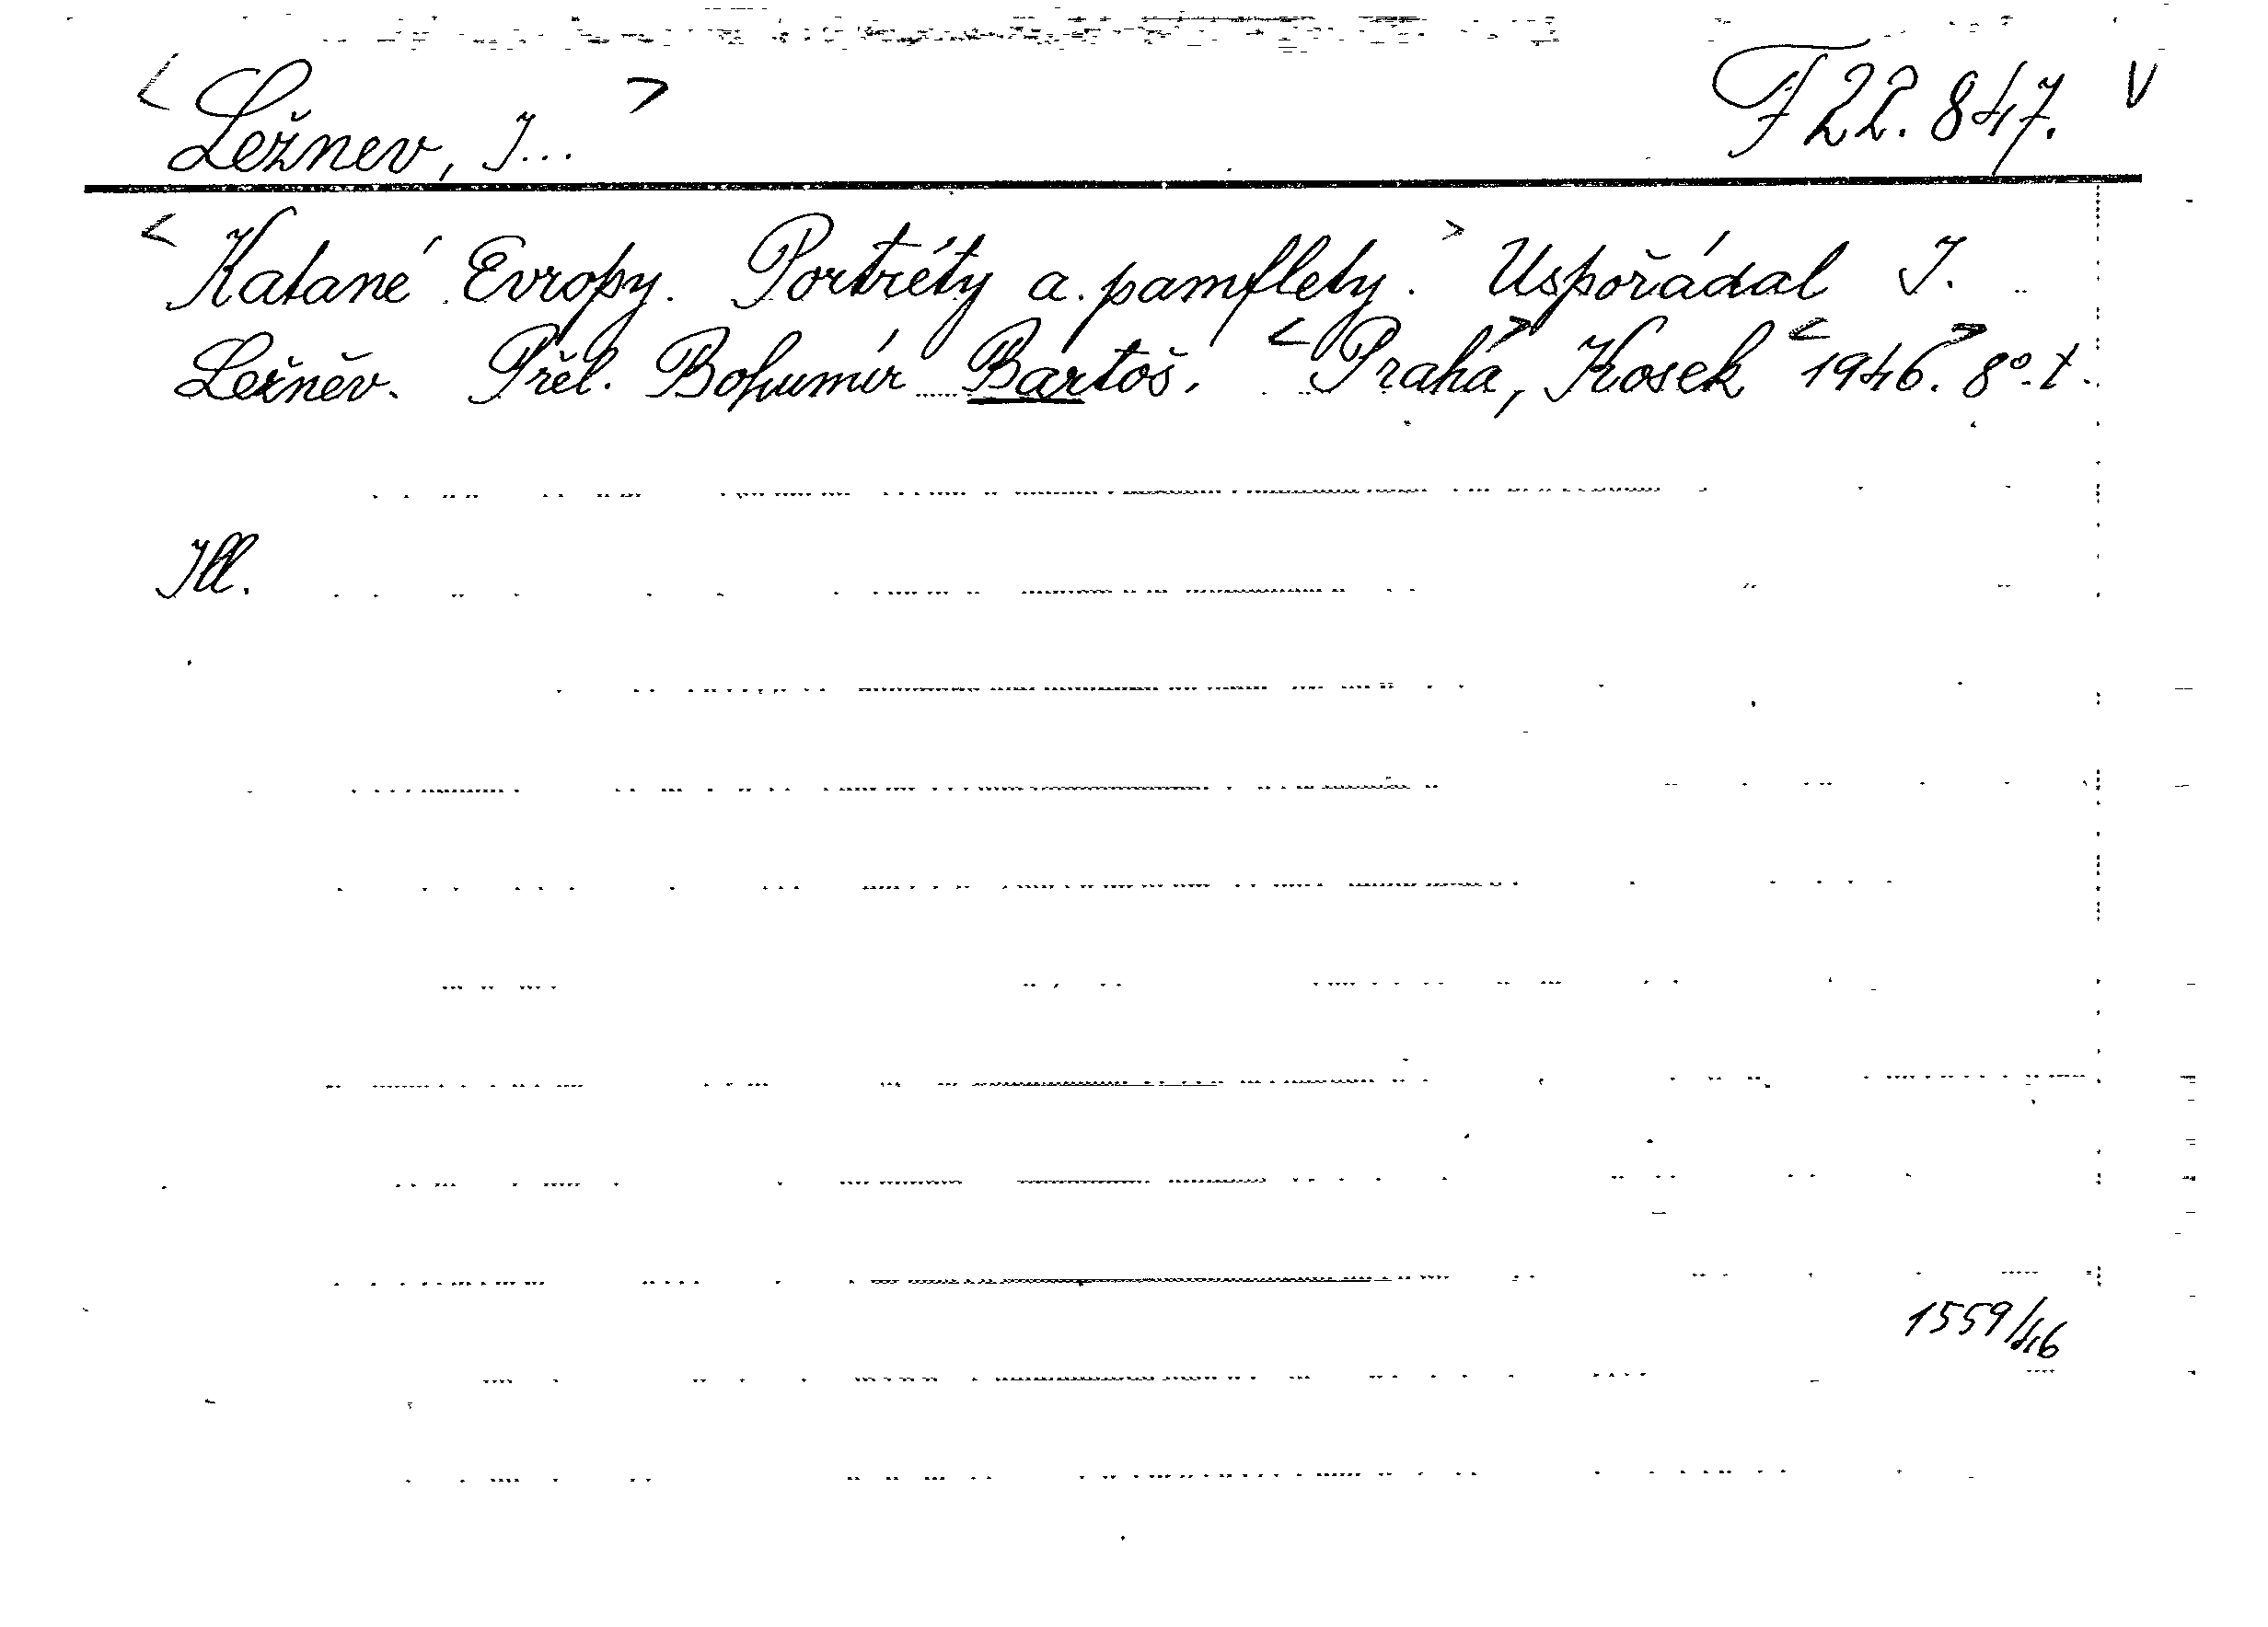 < Ležnev, I... > F 22.847. V
< Katané Evropy. Portréty a pamflety. > Uspořádal I.
Ležněv. Přel. Bohumír Bartoš. < Praha >, Kosek < 1946. > 8°. t.
Ill.
1559/46